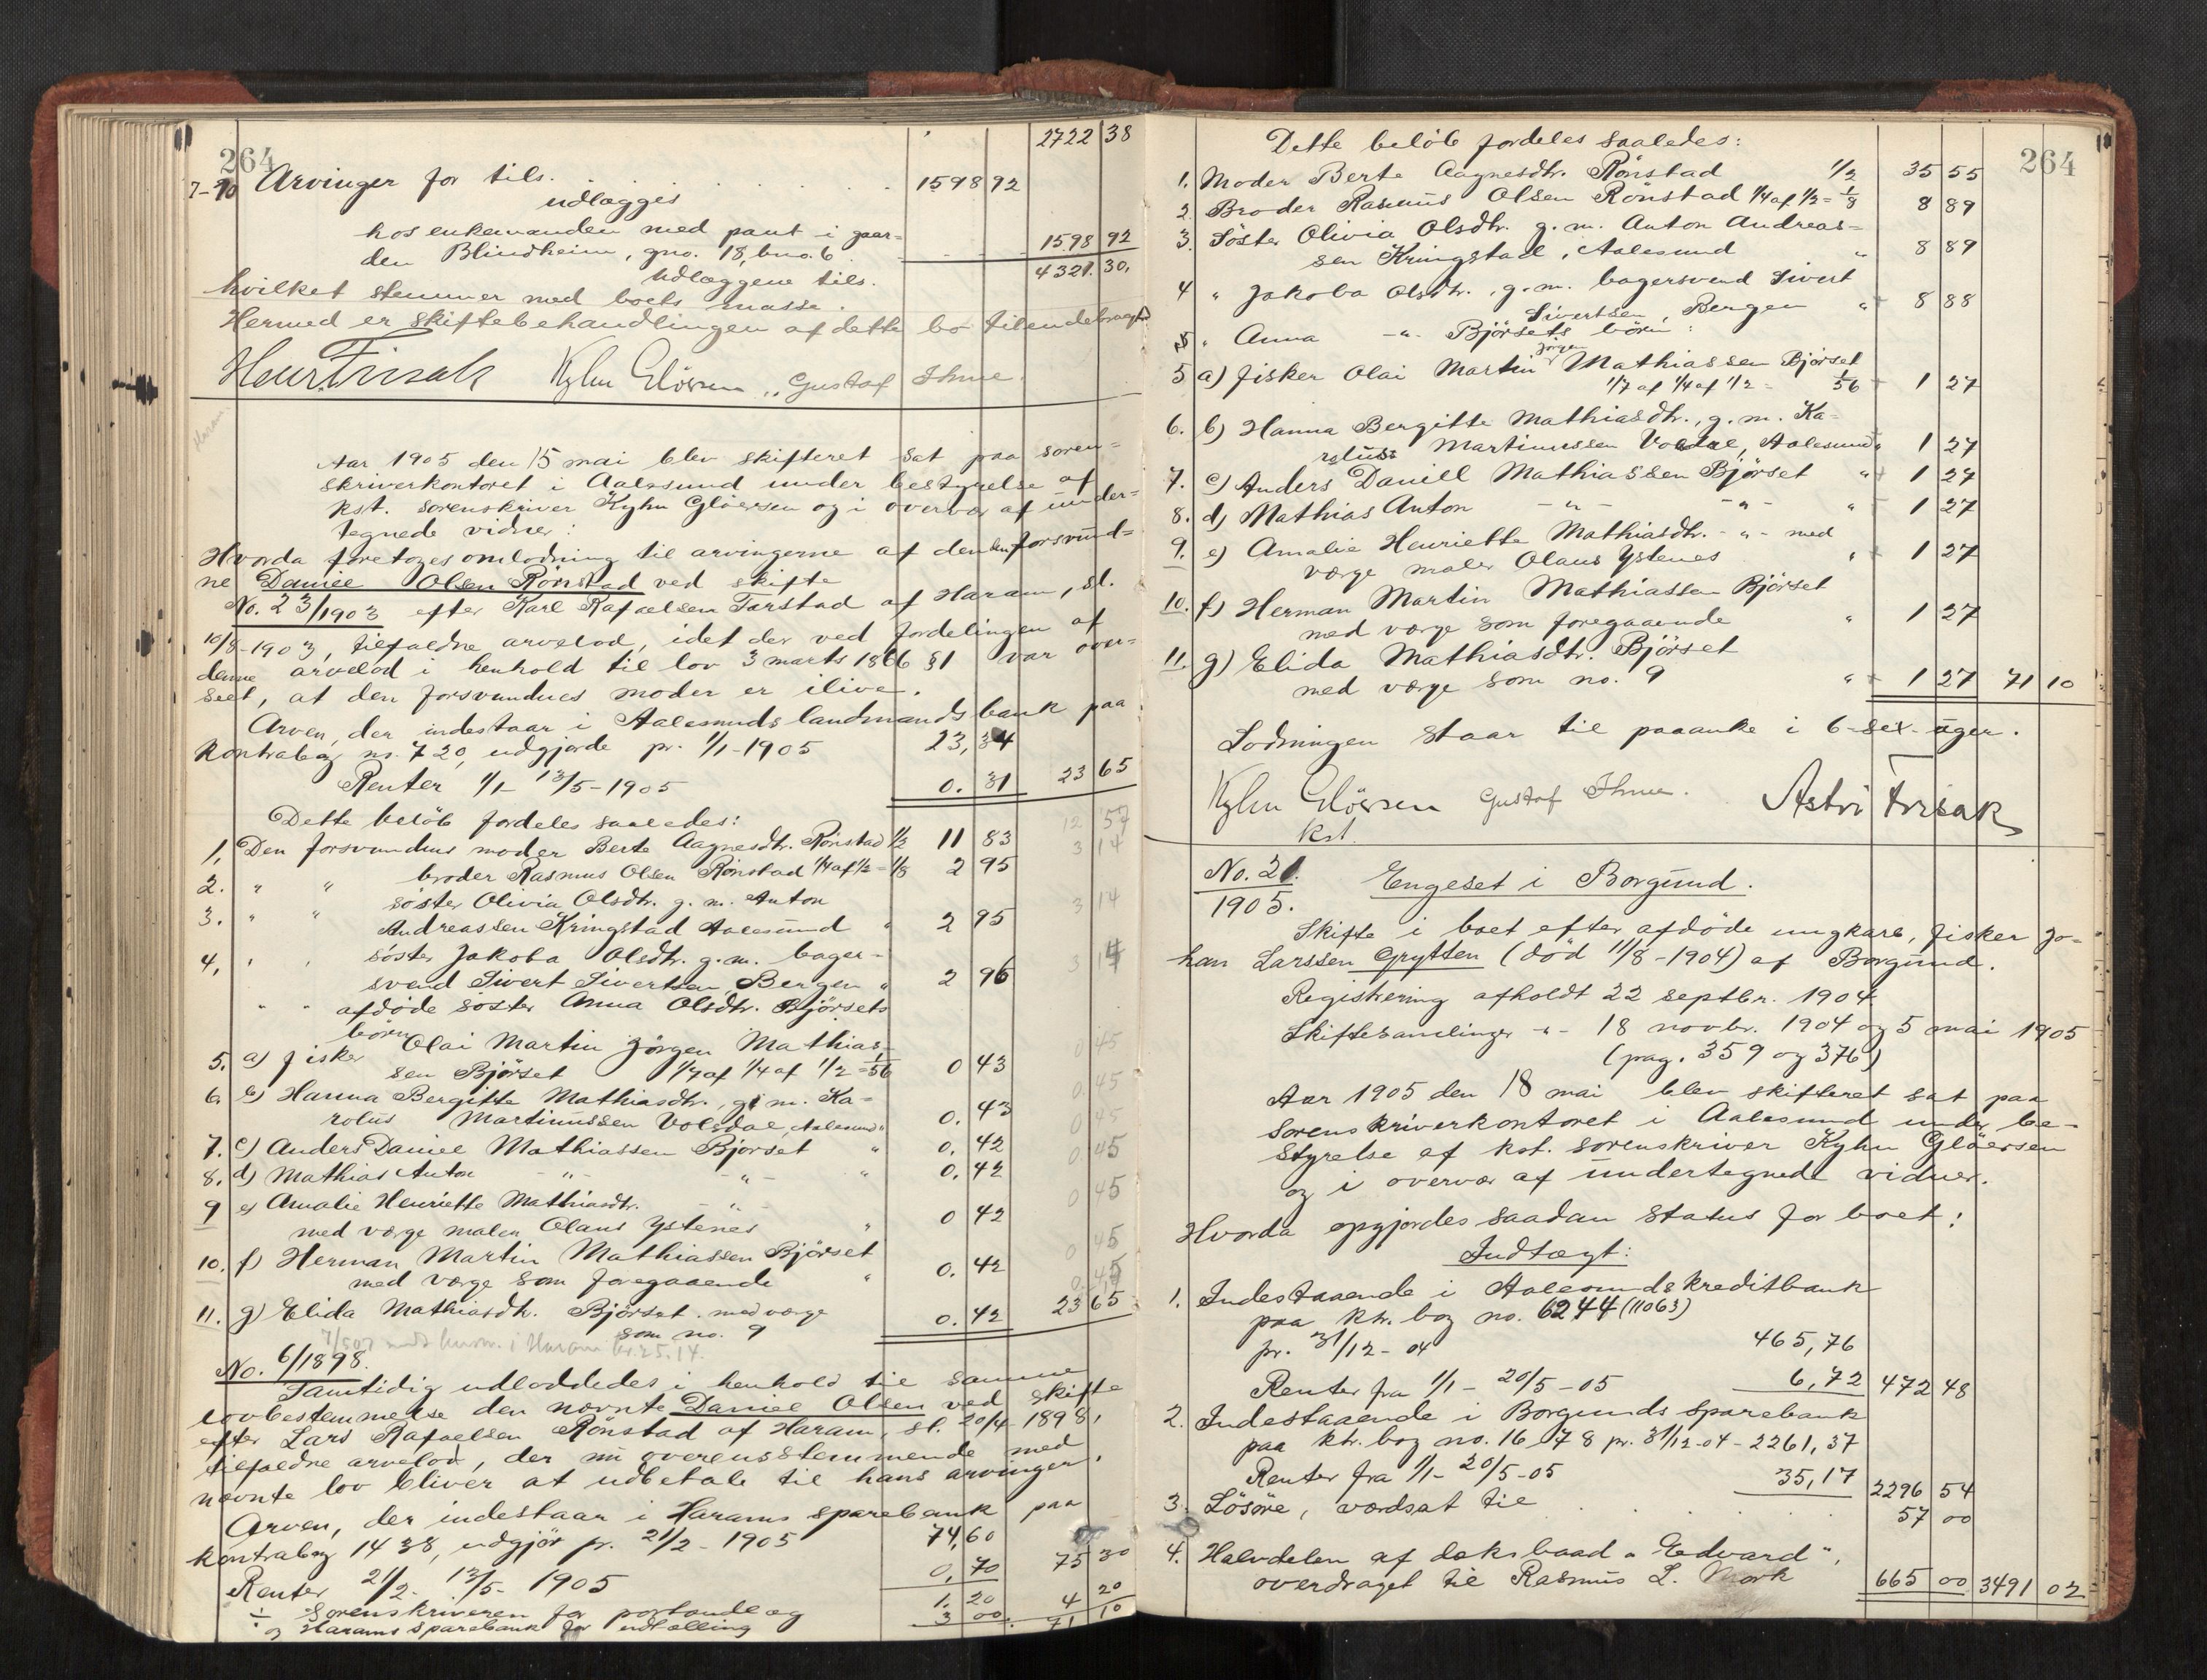 264
2722 38
7-10 Arvinger for tils. . . . . . . . 1598 92
udlægges
hos enkemanden med pant i gaar=
den Blindheim, gno. 18, bno. 6 . . . 1598 92
Udlæggene tils. 4321. 30.
hvilket stemmer med boets masse.
Hermed er skiftebehandlingen af dette bo tilendebragt
Kyhn Glöersen Gustaf Ihme.
Haram
Aar 1905 den 15 mai blev skifteret sat paa soren=
skriverkontoret i Aalesund under bestyrelse af
kst. sorenskriver Kyhn Glöersen og i overvær af under=
tegnede vidner:
Hvorda foretoges omlodning til arvingerne af den forsvund=
ne Daniel Olsen Rönstad ved skifte
No. 23/1903 efter Karl Rafaelsen Tarstad af Haram, sl.
10/8-1903, tilfaldne arvelod, idet der ved fordelingen af
denne arvelod i henhold til lov 3 marts 1866 §1 var over=
seet, at den forsvundnes moder er ilive.
Arven, der indestaar i Aalesunds landmandsbank paa
kontrabog no. 720, udgjorde pr. 1/1-1905 23,34
Renter 1/1 - 13/5-1905 0. 31 23 65
Dette belöb fordeles saaledes: 12 57
1. Den forsvundnes moder Berte Aagnesdtr. Rönstad 1/2 11 83 3 14
2. " " broder Rasmus Olsen Rönstad 1/4 af 1/2 = 1/8 2 95
3. " " söster Olivia Olsdtr. g. m. Anton 3 14
Andreassen Kringstad Aalesund " 2 95
4. " " söster Jakoba Olsdtr. g. m. bager- 3 14
svend Sivert Sivertsen, Bergen " 2 96
" " afdöde söster Anna Olsdtr. Björsets
börn
5. a) fisker Olai Martin Jörgen Mathias- 0 45
sen Björset 1/7 af 1/4 af 1/2 = 1/56 0 43
6. b) Hanna Bergitte Mathiasdtr., g. m. Ka= 0. 45
rolus Martinussen Volsdal, Aalesund " 0. 43 0 45
7. c) Anders Daniel Mathiassen Björset " 0. 42 0 45
8. d) Mathias Anton -"- -"- " 0. 42
9 e) Amalie Henriette Mathiasdtr. -"- 0 45
med værge maler Olaus Ystenes " 0 42
10. f) Herman Martin Mathiassen Björset 0 45
med værge som foregaaende " 0. 42 0. 45
11. g) Elida Mathiasdtr. Björset. med værge 0. 42 23 65
som no. 9
No. 6/1898.
Samtidig udloddedes i henhold til samme
lovbestemmelse den nævnte Daniel Olsen ved skifte
efter Lars Rafaelsen Rönstad af Haram, sl. 20/4 1898,
tilfaldne arvelod, der nu overensstemmende med
nævnte lov bliver at udbetale til hans arvinger.
Arven, der indestaar i Harams sparebank paa
kontrabog 1438, udgjör pr. 21/2 - 1905 74,60
Renter 21/2 - 13/5 - 1905 0, 70 75 30
÷ Sorenskriveren for portoudlæg 1. 20 4 20
og Harams sparebank for udtælling 3 00. 71 10
264
Dette belöb fordeles saaledes:
1. Moder Berte Aagnesdtr. Rönstad 1/2 35 55
2. Broder Rasmus Olsen Rönstad 1/4 af 1/2 = 1/8 8 89
3. Söster Olivia Olsdtr. g. m. Anton Andreas=
sen Kringstad, Aalesund " 8 89
4 " Jakoba Olsdtr., g. m. bagersvend Sivert
Sivertsen, Bergen " 8 88
" Anna -"- Björsets börn:
5 a) Fisker Olai Martin Jörgen Mathiassen Björset
1/7 af 1/4 af 1/2 = 1/56 1 27
6. b) Hanna Bergitte Mathiasdtr., g. m. Ka=
rolus Martinussen Volsdal, Aalesund " 1 27
7. c) Anders Daniell Mathiassen Björset " 1 27
8. d) Mathias Anton -"- -"- " 1 27
9. e) Amalie Henriette Mathiasdtr. -"- med
værge maler Olaus Ystenes " 1 27
10. f) Herman Martin Mathiassen Björset
med værge som foregaaende " 1 27
11. g) Elida Mathiasdtr. Björset
med værge som no. 9 " 1 27 71 10
Lodningen staar til paaanke i 6-sex-uger.
Kyhn Glöersen Gustaf Ihme. Astri Frisak
kst.
No. 21.
1905. Engeset i Borgund.
Skifte i boet efter afdöde ungkarl, fisker Jo=
han Larssen Grytten (död 11/8-1904) af Borgund.
Registrering afholdt 22 septbr. 1904
Skiftesamlinger -"- 18 novbr. 1904 og 5 mai 1905
(pag. 359 og 376)
Aar 1905 den 18 mai blev skifteret sat paa
sorenskriverkontoret i Aalesund under be-
styrelse af kst. sorenskriver Kyhn Glöersen
og i overvær af undertegnede vidner.
Hvorda opgjordes saadan status for boet:
Indtægt:
1. Indestaaende i Aalesunds kreditbank
paa ktr. bog no. 6244 (11063)
pr. 31/12-04 465,76
Renter fra 1/1 - 20/5-05 6,72 472 48
2. Indestaaende i Borgunds sparebank
paa ktr. bog no. 1678 pr. 31/12-04 - 2261,37
Renter fra 1/1 - 20/5-05 35,17 2296 54
3. Lösöre, værdsat til . . . . . 57 00
4. Halvdelen af dæksbaad "Edvard",
overdraget til Rasmus L. Mork 665 00 3491 02